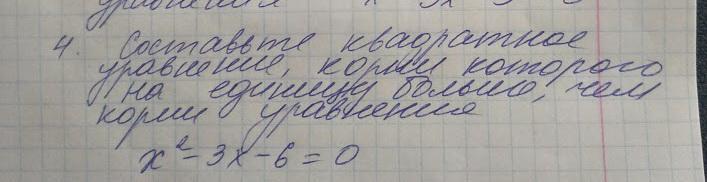 уравнения
4. Составьте квадратное
уравнение, корни которого
на единицу больше, чем
корни уравнения
x² - 3x - 6 = 0